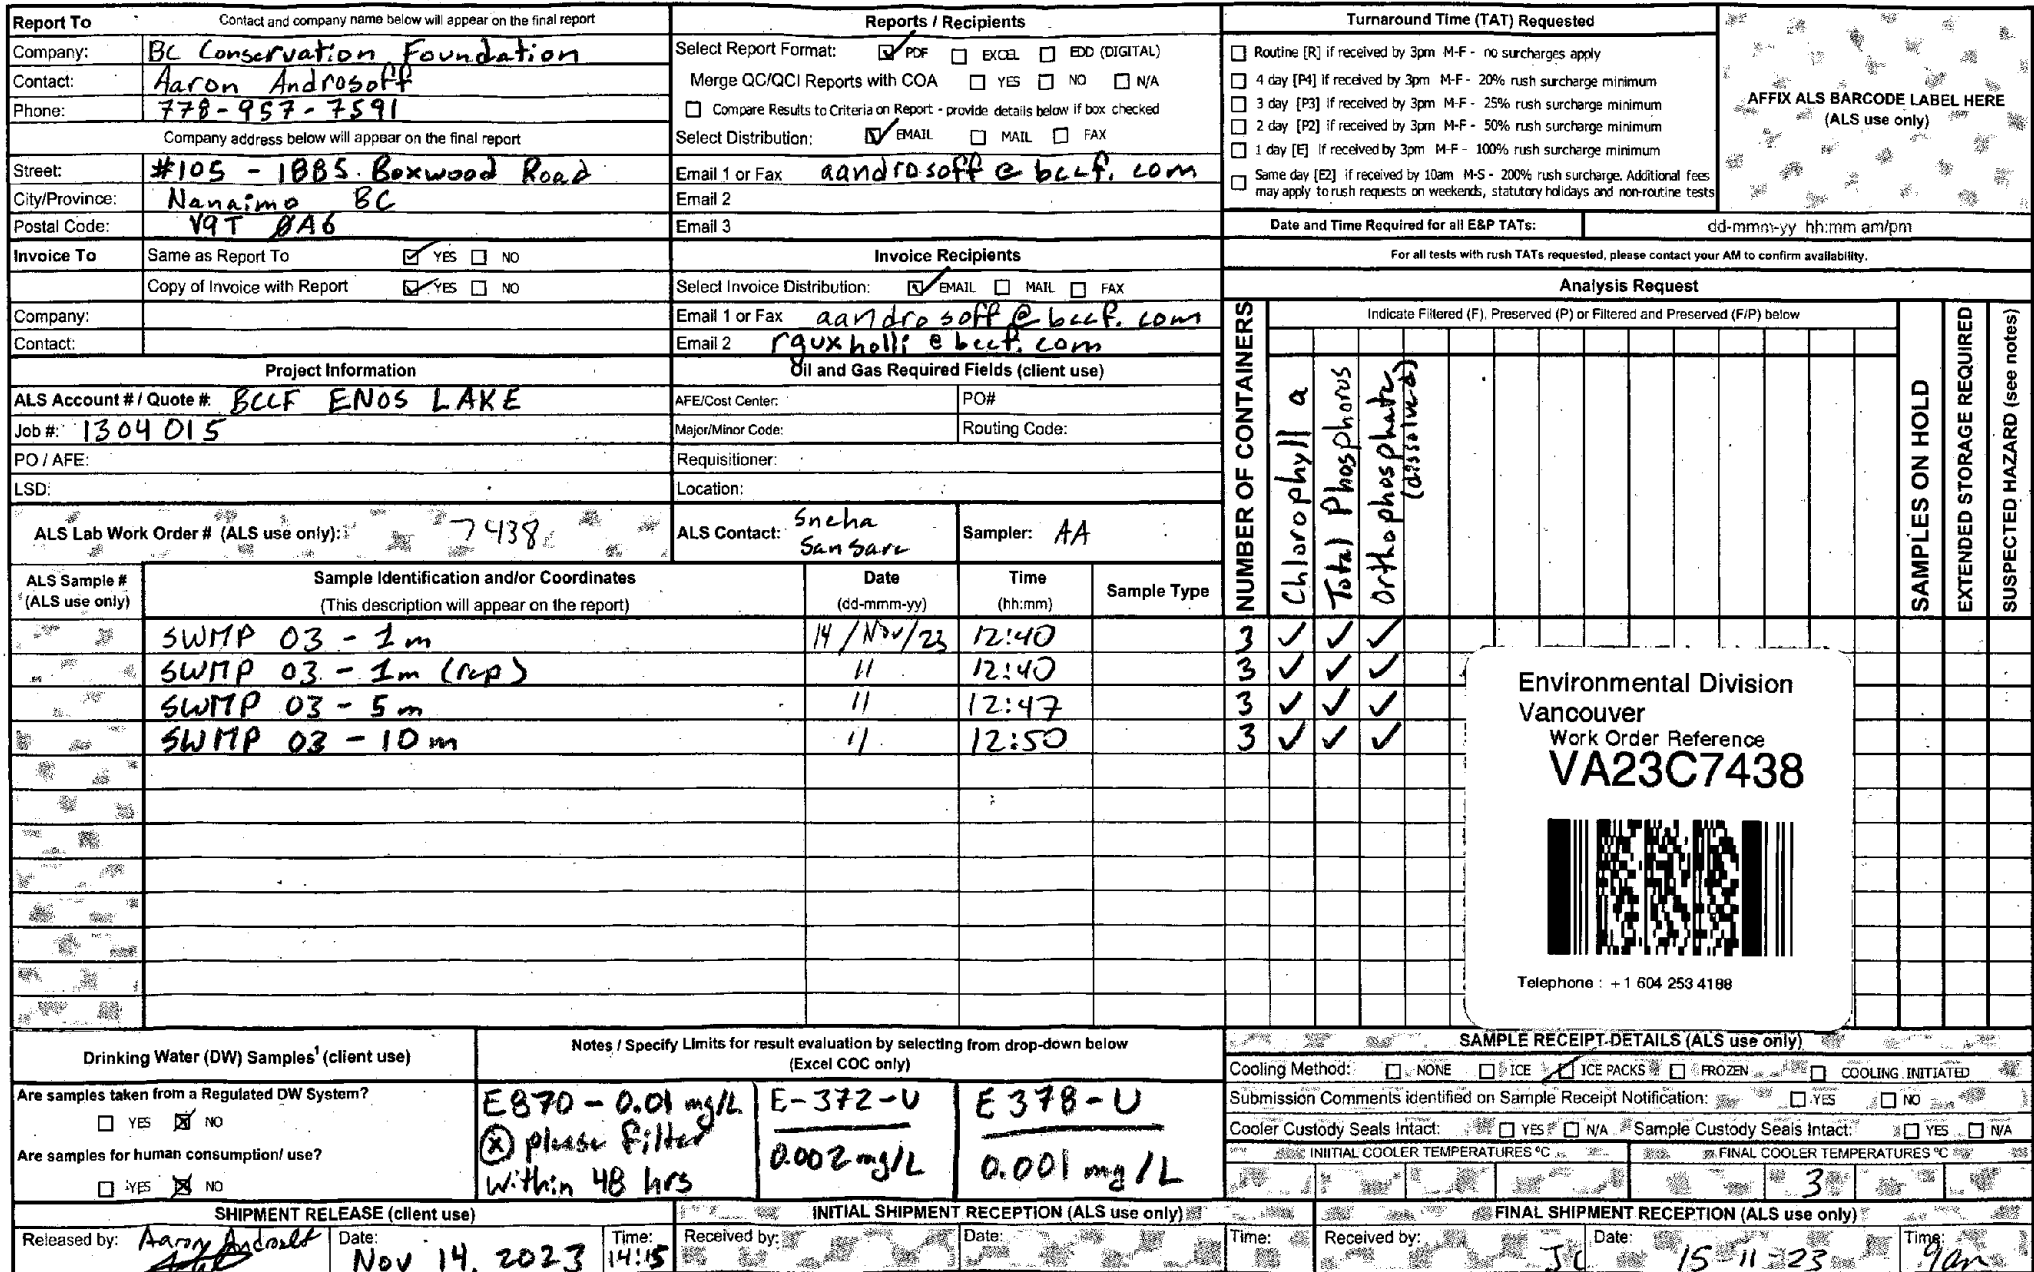 Report To Contact and company name below will appear on the final report
Company: BC Conservation Foundation
Contact: Aaron Androsoff
Phone: 778-957-7591
Company address below will appear on the final report
Street: #105 - 1885 Boxwood Road
City/Province: Nanaimo BC
Postal Code: V9T 0A6
Invoice To Same as Report To YES NO
Copy of Invoice with Report YES NO
Company:
Contact:
Project Information
ALS Account # / Quote #: BCCF ENOS LAKE
Job #: 1304015
PO / AFE:
LSD:
ALS Lab Work Order # (ALS use only): 7438
Reports / Recipients
Select Report Format: PDF EXCEL EDD (DIGITAL)
Merge QC/QCI Reports with COA YES NO N/A
Compare Results to Criteria on Report - provide details below if box checked
Select Distribution: EMAIL MAIL FAX
Email 1 or Fax aandrosoff@bccf.com
Email 2
Email 3
Invoice Recipients
Select Invoice Distribution: EMAIL MAIL FAX
Email 1 or Fax aandrosoff@bccf.com
Email 2 rguxholli@bccf.com
Oil and Gas Required Fields (client use)
AFE/Cost Center: PO#
Major/Minor Code: Routing Code:
Requisitioner:
Location:
ALS Contact: Sneha
Sansare
Sampler: AA
Turnaround Time (TAT) Requested
Routine [R] if received by 3pm M-F - no surcharges apply
4 day [P4] if received by 3pm M-F - 20% rush surcharge minimum
3 day [P3] if received by 3pm M-F - 25% rush surcharge minimum
2 day [P2] if received by 3pm M-F - 50% rush surcharge minimum
1 day [E] if received by 3pm M-F - 100% rush surcharge minimum
Same day [E2] if received by 10am M-S - 200% rush surcharge. Additional fees
may apply to rush requests on weekends, statutory holidays and non-routine tests
AFFIX ALS BARCODE LABEL HERE
(ALS use only)
Date and Time Required for all E&P TATs: dd-mmm-yy hh:mm am/pm
For all tests with rush TATs requested, please contact your AM to confirm availability.
Analysis Request
Indicate Filtered (F), Preserved (P) or Filtered and Preserved (F/P) below
NUMBER OF CONTAINERS
Chlorophyll a
Total Phosphorus
Orthophosphate
(dissolved)
SAMPLES ON HOLD
EXTENDED STORAGE REQUIRED
SUSPECTED HAZARD (see notes)
ALS Sample # Sample Identification and/or Coordinates Date Time Sample Type
(ALS use only) (This description will appear on the report) (dd-mmm-yy) (hh:mm)
SWMP 03 - 1m 14/Nov/23 12:40 3 ✓ ✓ ✓
SWMP 03 - 1m (rep) " 12:40 3 ✓ ✓ ✓
SWMP 03 - 5m " 12:47 3 ✓ ✓ ✓
SWMP 03 - 10m " 12:50 3 ✓ ✓ ✓
Environmental Division
Vancouver
Work Order Reference
VA23C7438
Telephone : +1 604 253 4188
Drinking Water (DW) Samples¹ (client use)
Are samples taken from a Regulated DW System?
YES NO
Are samples for human consumption/ use?
YES NO
Notes / Specify Limits for result evaluation by selecting from drop-down below
(Excel COC only)
E870 - 0.01 mg/L
please filter
within 48 hrs
E-372-U
0.002 mg/L
E378-U
0.001 mg/L
SAMPLE RECEIPT DETAILS (ALS use only)
Cooling Method: NONE ICE ICE PACKS FROZEN COOLING INITIATED
Submission Comments identified on Sample Receipt Notification: YES NO
Cooler Custody Seals Intact: YES N/A Sample Custody Seals Intact: YES N/A
INIITIAL COOLER TEMPERATURES °C FINAL COOLER TEMPERATURES °C
3
SHIPMENT RELEASE (client use) INITIAL SHIPMENT RECEPTION (ALS use only) FINAL SHIPMENT RECEPTION (ALS use only)
Released by: Aaron Androsoff Date: Nov 14, 2023 Time: 14:15 Received by: Date: Time: Received by: JC Date: 15-11-23 Time: 9am